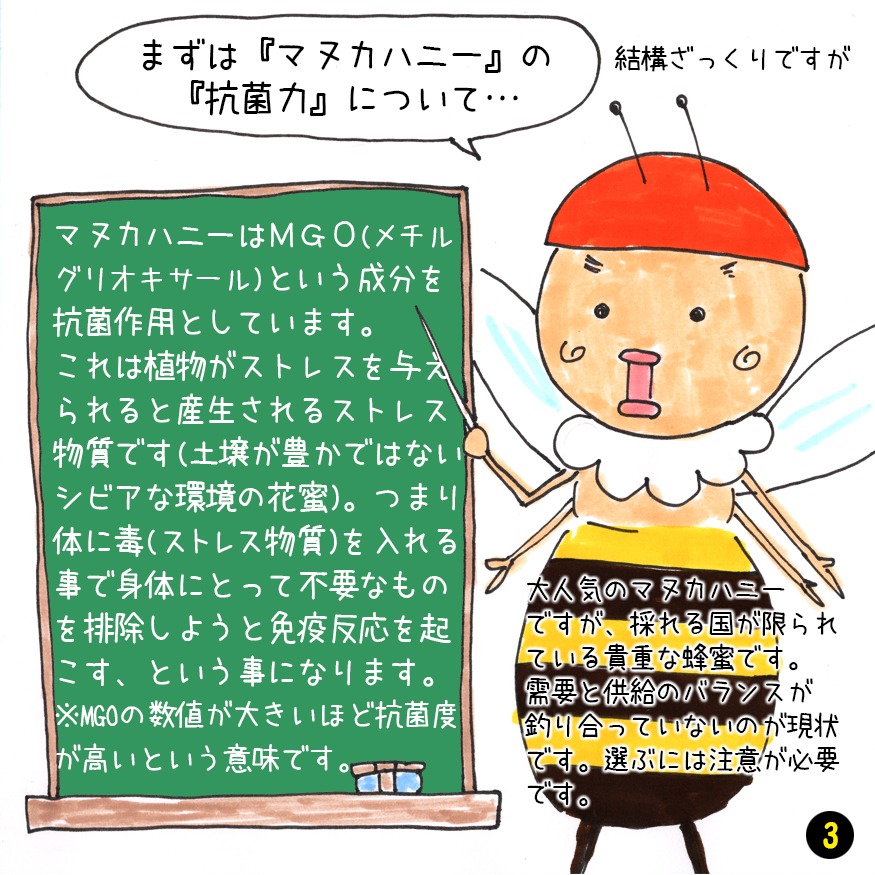 まずは『マヌカハニー』の
『抗菌力』について…
結構ざっくりですが
マヌカハニーはMGO(メチル
グリオキサール)という成分を
抗菌作用としています。
これは植物がストレスを与え
られると産生されるストレス
物質です(土壌が豊かではない
シビアな環境の花蜜)。つまり
体に毒(ストレス物質)を入れる
事で身体にとって不要なもの
を排除しようと免疫反応を起
こす、という事になります。
※MGOの数値が大きいほど抗菌度
が高いという意味です。
大人気のマヌカハニー
ですが、採れる国が限られ
ている貴重な蜂蜜です。
需要と供給のバランスが
釣り合っていないのが現状
です。選ぶには注意が必要
です。
3